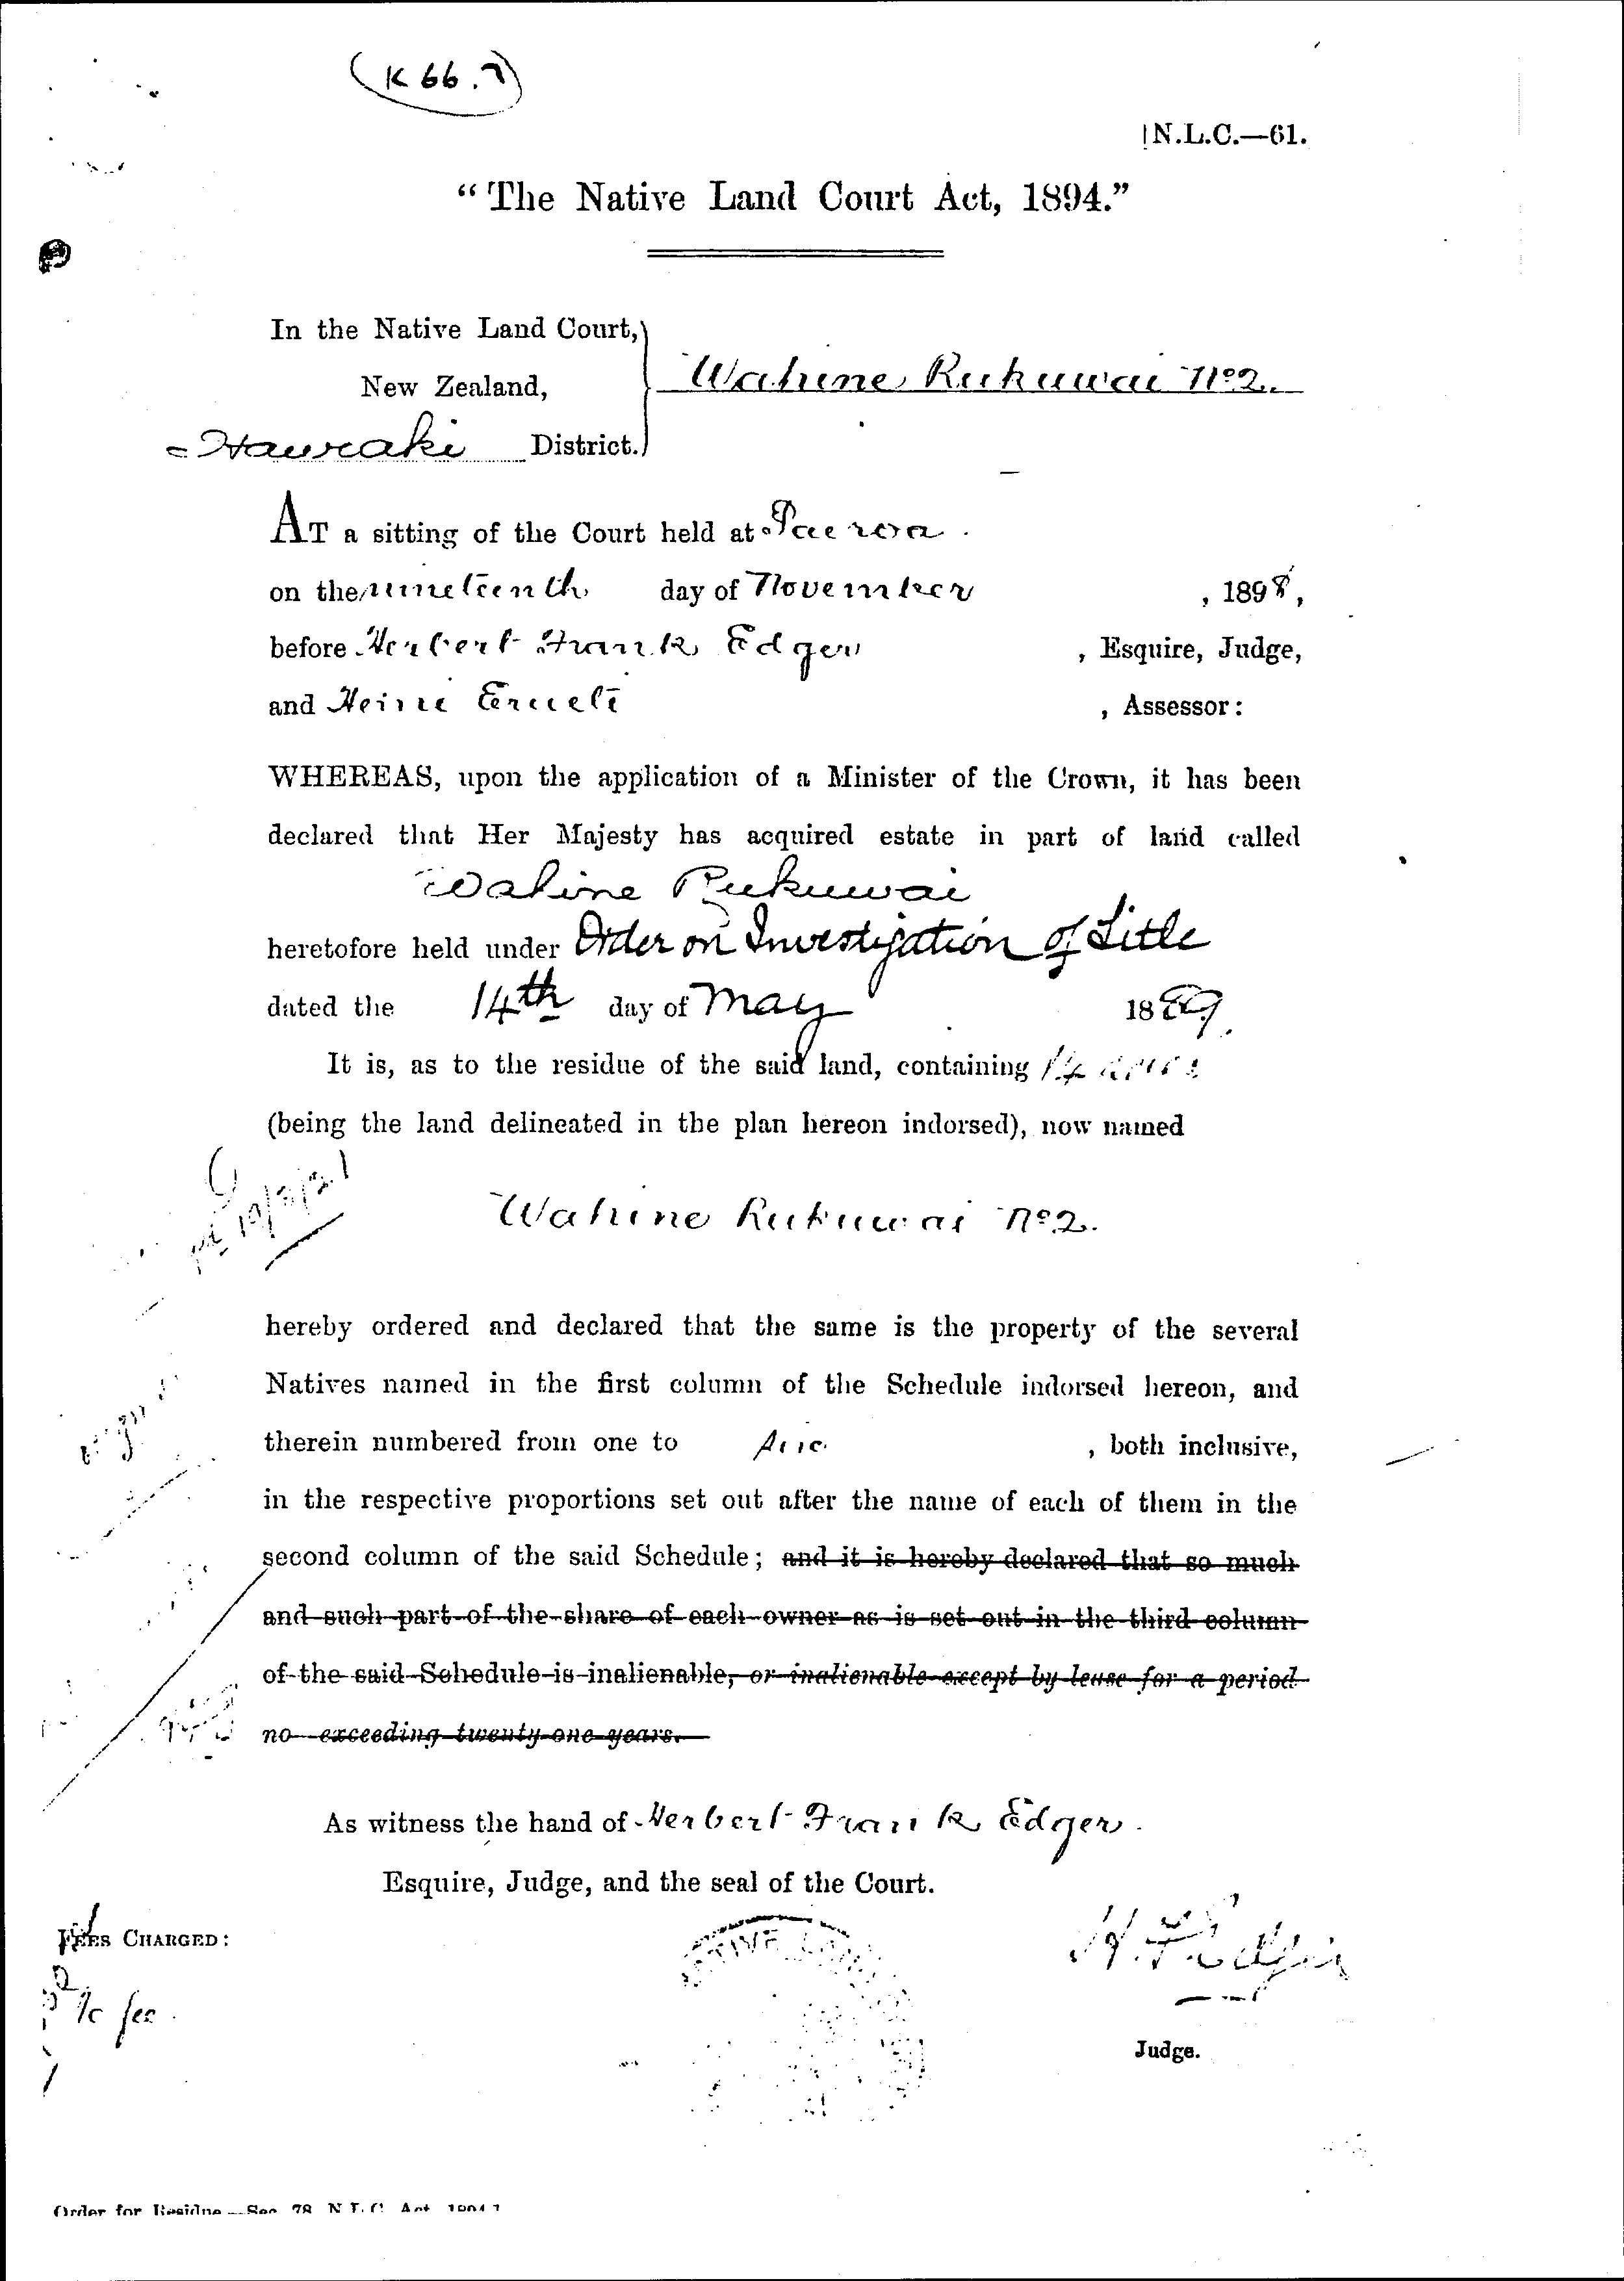 (K 66.7)
N.L.C.—61.
"The Native Land Court Act, 1894."
In the Native Land Court,
New Zealand,
Hauraki District.
Wahine Rukuwai No 2.
AT a sitting of the Court held at Paeroa.
on the nineteenth day of November , 1898,
before Herbert Frank Edger , Esquire, Judge,
and Heini Erueti , Assessor:
WHEREAS, upon the application of a Minister of the Crown, it has been
declared that Her Majesty has acquired estate in part of land called
Wahine Rukuwai
heretofore held under Order on Investigation of Title
dated the 14th day of May 1889.
It is, as to the residue of the said land, containing 14 acres
(being the land delineated in the plan hereon indorsed), now named
19/3/21
Wahine Rukuwai No 2.
hereby ordered and declared that the same is the property of the several
Natives named in the first column of the Schedule indorsed hereon, and
therein numbered from one to , both inclusive,
in the respective proportions set out after the name of each of them in the
second column of the said Schedule; and it is hereby declared that so much
and such part of the share of each owner as is set out in the third column
of the said Schedule is inalienable, or inalienable except by lease for a period
no exceeding twenty-one years.
As witness the hand of Herbert Frank Edger.
Esquire, Judge, and the seal of the Court.
FEES CHARGED:
fee.
NATIVE LAND
H. F. Edger
Judge.
Order for Residue.—Sec. 78, N.L.C. Act, 1894.]